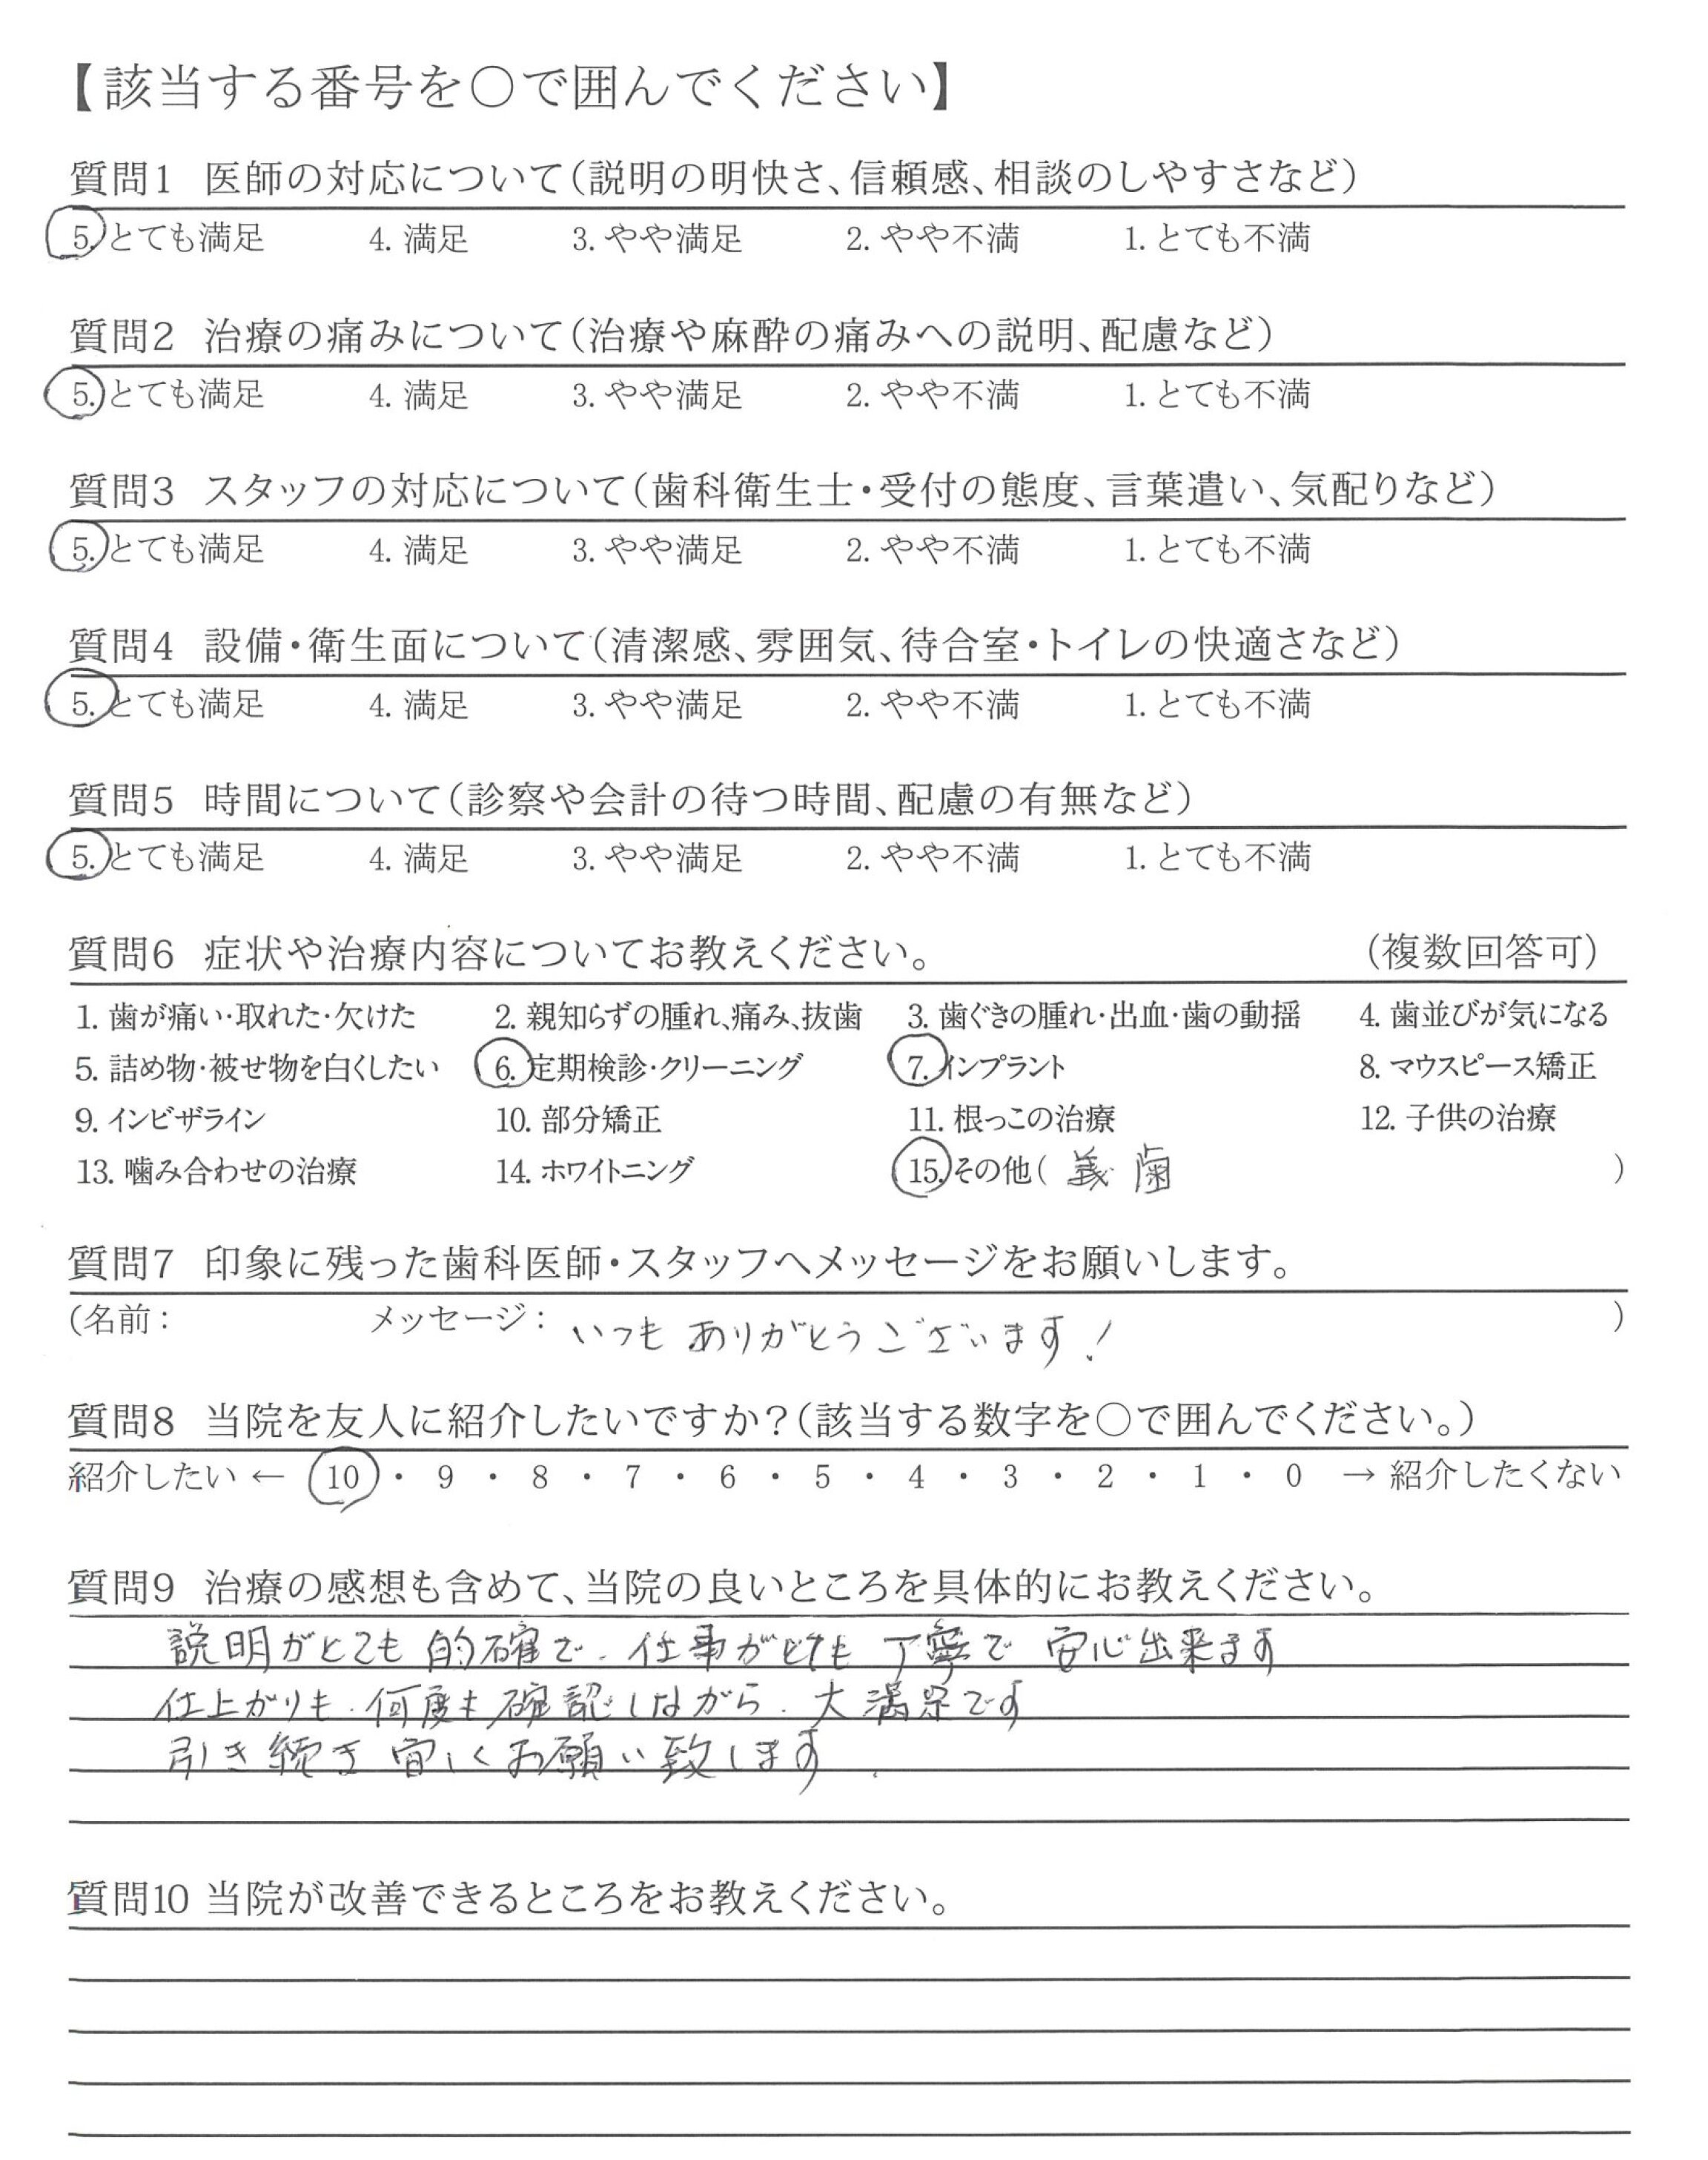 【該当する番号を○で囲んでください】
質問1 医師の対応について(説明の明快さ、信頼感、相談のしやすさなど)
5. とても満足 4. 満足 3. やや満足 2. やや不満 1. とても不満
質問2 治療の痛みについて(治療や麻酔の痛みへの説明、配慮など)
5. とても満足 4. 満足 3. やや満足 2. やや不満 1. とても不満
質問3 スタッフの対応について(歯科衛生士・受付の態度、言葉遣い、気配りなど)
5. とても満足 4. 満足 3. やや満足 2. やや不満 1. とても不満
質問4 設備・衛生面について(清潔感、雰囲気、待合室・トイレの快適さなど)
5. とても満足 4. 満足 3. やや満足 2. やや不満 1. とても不満
質問5 時間について(診察や会計の待つ時間、配慮の有無など)
5. とても満足 4. 満足 3. やや満足 2. やや不満 1. とても不満
質問6 症状や治療内容についてお教えください。 (複数回答可)
1. 歯が痛い・取れた・欠けた 2. 親知らずの腫れ、痛み、抜歯 3. 歯ぐきの腫れ・出血・歯の動揺 4. 歯並びが気になる
5. 詰め物・被せ物を白くしたい 6. 定期検診・クリーニング 7. インプラント 8. マウスピース矯正
9. インビザライン 10. 部分矯正 11. 根っこの治療 12. 子供の治療
13. 噛み合わせの治療 14. ホワイトニング 15. その他( 義歯 )
質問7 印象に残った歯科医師・スタッフへメッセージをお願いします。
(名前: メッセージ: いつも ありがとうございます! )
質問8 当院を友人に紹介したいですか?(該当する数字を○で囲んでください。)
紹介したい ← 10 ・ 9 ・ 8 ・ 7 ・ 6 ・ 5 ・ 4 ・ 3 ・ 2 ・ 1 ・ 0 → 紹介したくない
質問9 治療の感想も含めて、当院の良いところを具体的にお教えください。
説明がとても 的確で、仕事がとても 丁寧で 安心出来ます
仕上がりも、何度も確認しながら、大満足です
引き続き 宜しくお願い致します.
質問10 当院が改善できるところをお教えください。